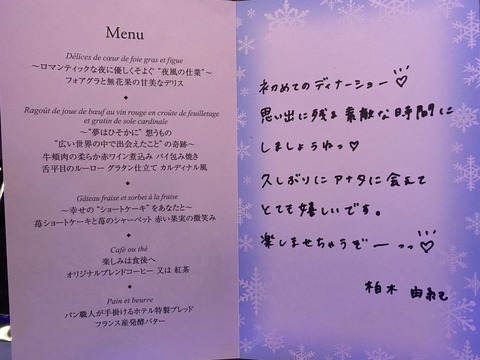 Menu
Délices de cœur de foie gras et figue
〜ロマンティックな夜に優しくそよぐ “夜風の仕業”〜
フォアグラと無花果の甘美なデリス
Ragoût de joue de bœuf au vin rouge en croûte de feuilletage
et gratin de sole cardinale
〜“夢はひそかに” 想うもの
“広い世界の中で出会えたこと” の奇跡〜
牛頬肉の柔らか赤ワイン煮込み パイ包み焼き
舌平目のルーロー グラタン仕立て カルディナル風
Gâteau fraise et sorbet à la fraise
〜幸せの “ショートケーキ” をあなたと〜
苺ショートケーキと苺のシャーベット 赤い果実の微笑み
Café ou thé
楽しみは食後へ
オリジナルブレンドコーヒー 又は 紅茶
Pain et beurre
パン職人が手掛けるホテル特製ブレッド
フランス産発酵バター
初めてのディナーショー♡
思い出に残る 素敵な時間に
しましょうねっ♡
久しぶりに アナタに 会えて
とても嬉しいです。
楽しませちゃうぞーっっ♡
柏木 由紀